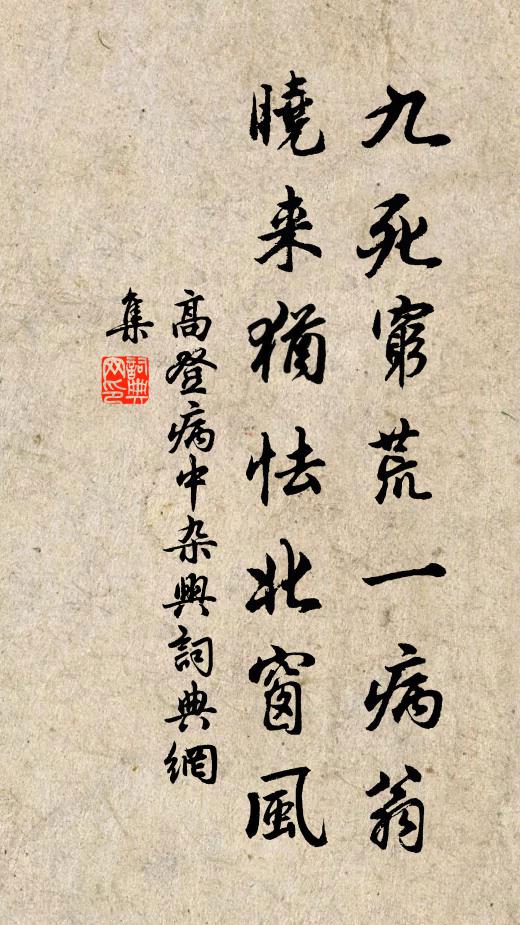 九死窮荒一病翁
曉来猶怯北窗風
高登病中杂興詞典網
集
詞典
网印